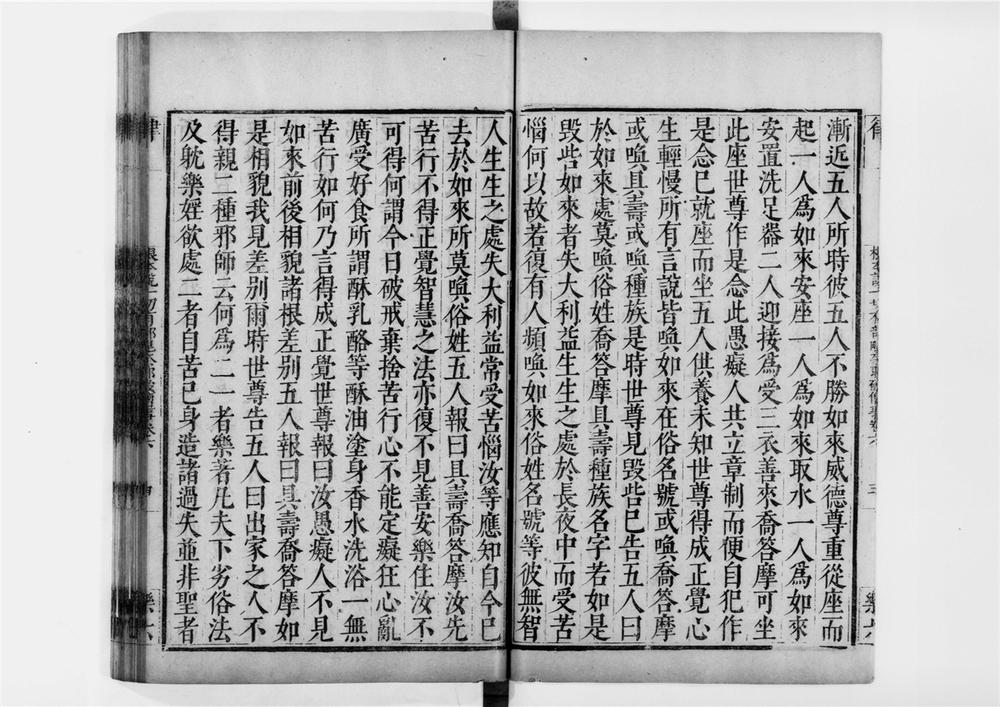 漸近五人所時彼五人不勝如來威德尊重從座而
起一人爲如來安座一人爲如來取水一人爲如來
安置洗足器二人迎接爲受三衣善來喬答摩可坐
此座世尊作是念此愚癡人共立章制而便自犯作
是念已就座而坐五人供養未知世尊得成正覺心
生輕慢所有言說皆喚如來在俗名號或喚喬答摩
或喚具壽或喚種族是時世尊見毀呰已告五人曰
於如來處莫喚俗姓喬答摩具壽種族名字若如是
毀呰如來者失大利益生生之處於長夜中而受苦
惱何以故若復有人頻喚如來俗姓名號等彼無智
人生生之處失大利益常受苦惱汝等應知自今已
去於如來所莫喚俗姓五人報曰具壽喬答摩汝先
苦行不得正覺智慧之法亦復不見善安樂住汝不
可得何謂今日破戒棄捨苦行心不能定癡狂心亂
廣受好食所謂酥乳酪等酥油塗身香水洗浴一無
苦行如何乃言得成正覺世尊報曰汝愚癡人不見
如來前後相貌諸根差別五人報曰具壽喬答摩如
是相貌我見差別爾時世尊告五人曰出家之人不
得親二種邪師云何爲二一者樂著凡夫下劣俗法
及躭樂婬欲處二者自苦己身造諸過失並非聖者
律
樂六